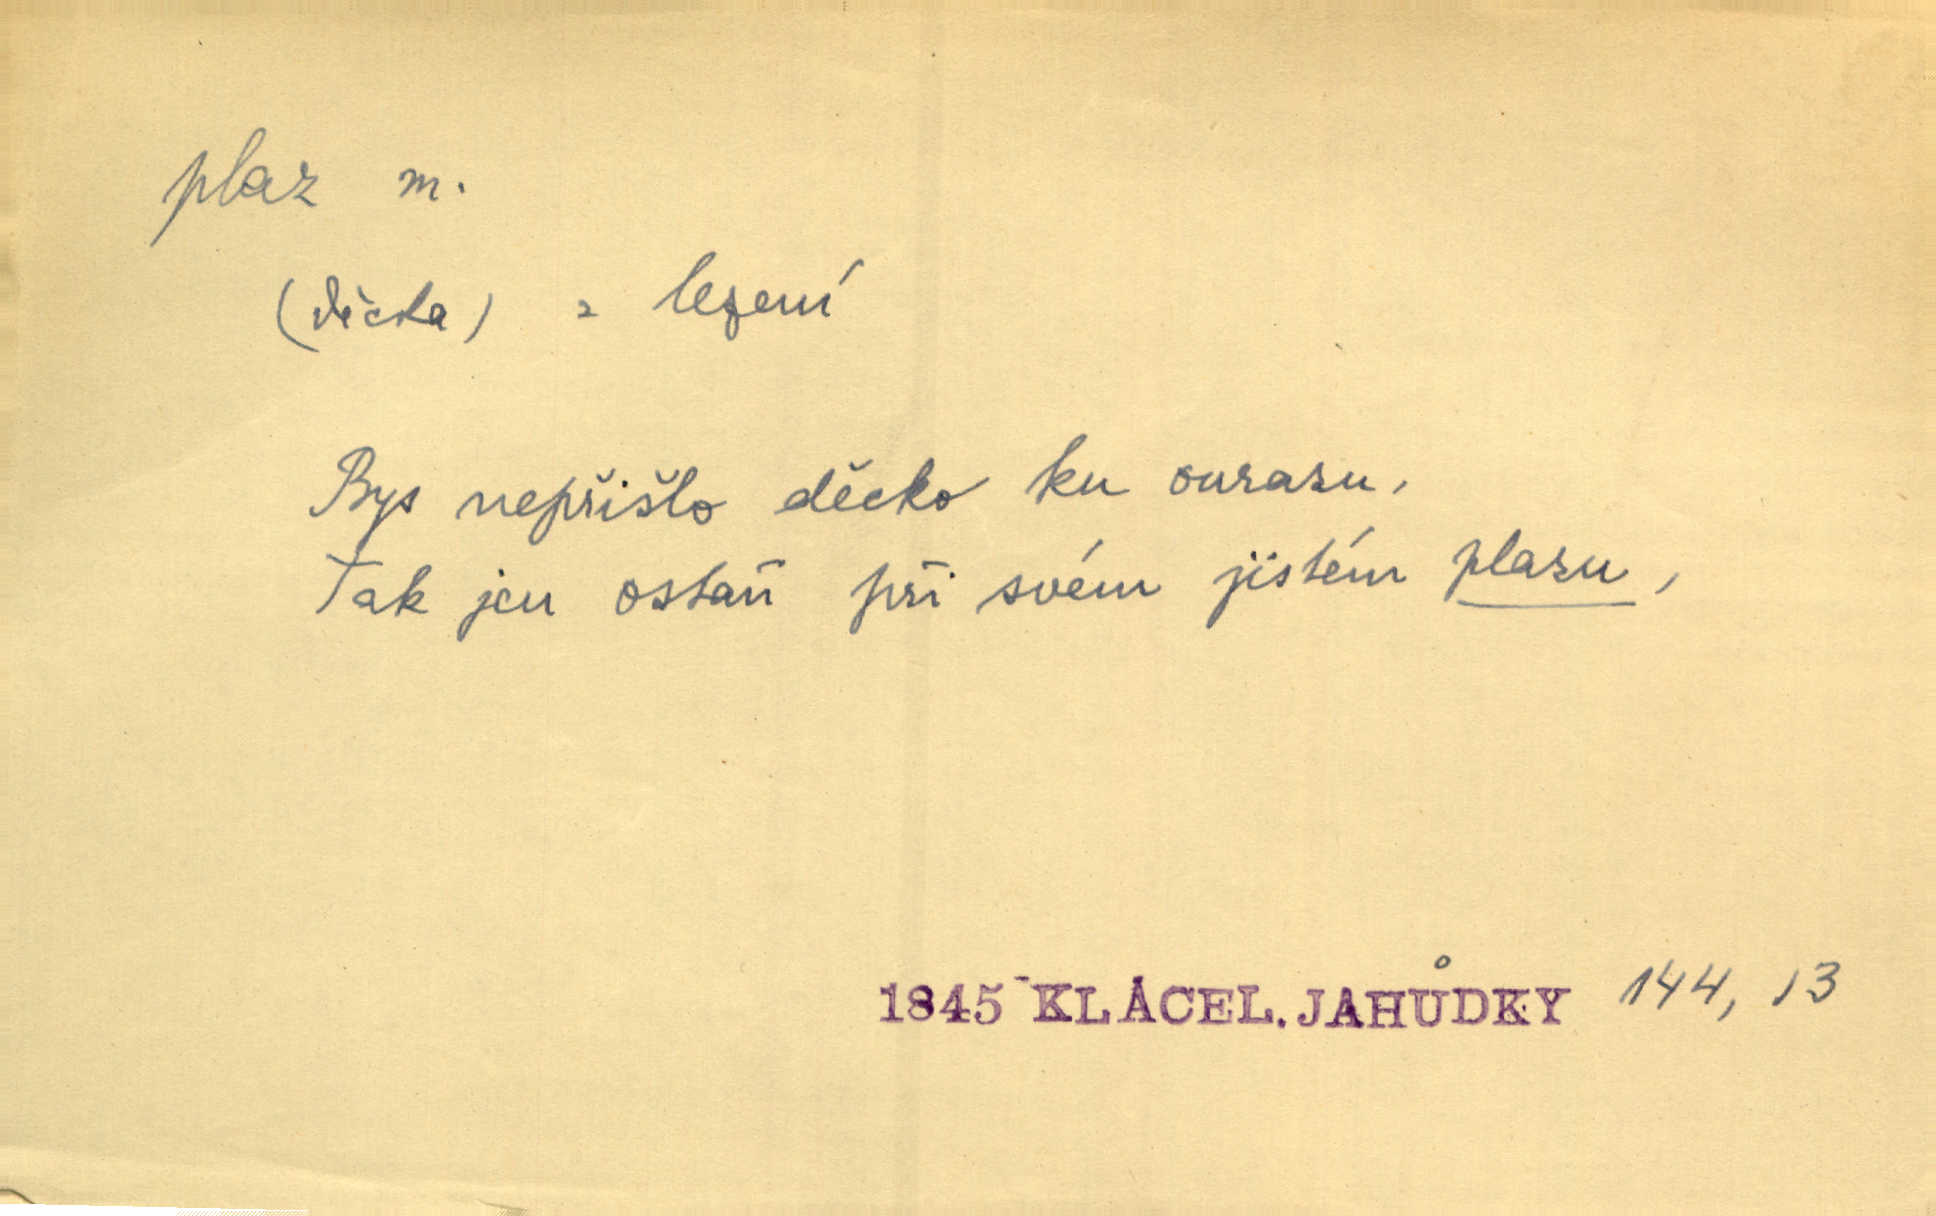 plaz m.
(děcka) = lezení
Bys nepřišlo děcko ku ourazu,
Tak jen ostaň při svém jistém plazu,
1845 KLÁCEL. JAHŮDKY 144, 13